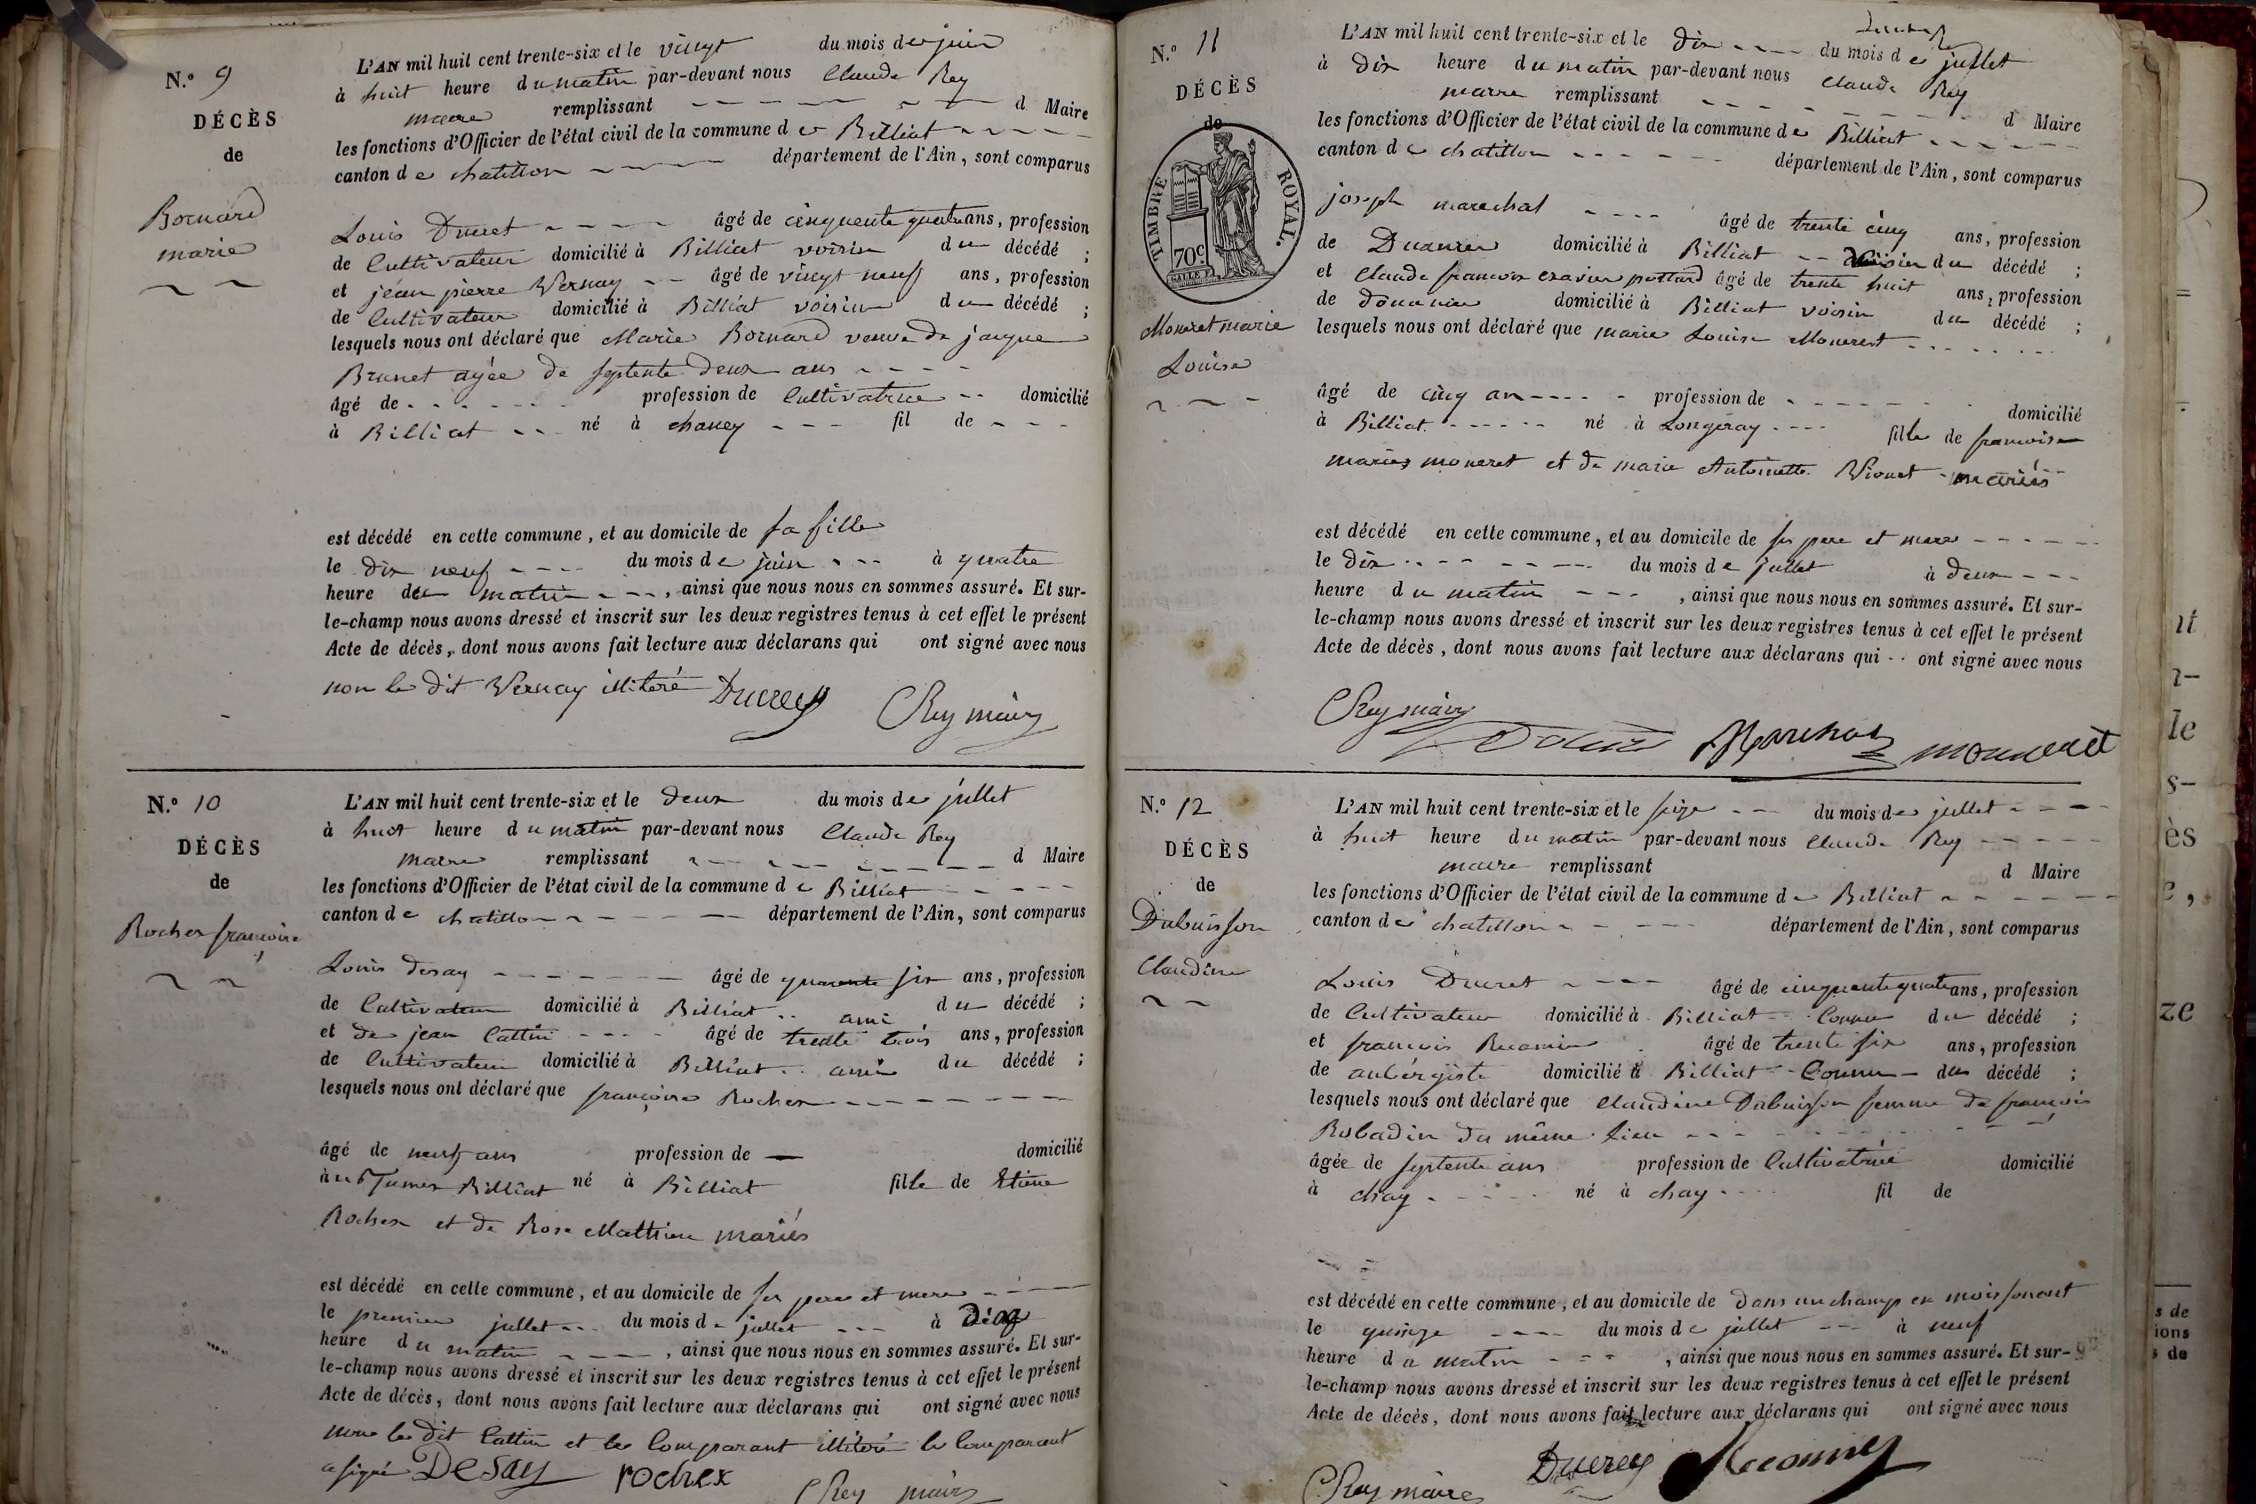 N.o 9
DÉCÈS
de
Bornard
marie
L'AN mil huit cent trente-six et le vingt du mois de juin
à huit heure du matin par-devant nous Claude Rey
maire remplissant d Maire
les fonctions d'Officier de l'état civil de la commune de Billiat
canton de chatillon département de l'Ain, sont comparus
Louis Ducret âgé de cinquente quatre ans, profession
de Cultivateur domicilié à Billiat voisin du décédé ;
et jean pierre Vernay âgé de vingt neuf ans, profession
de Cultivateur domicilié à Billiat voisin du décédé ;
lesquels nous ont déclaré que Marie Bornard veuve de jacque
Brunet agée de septente deux ans
âgé de profession de Cultivatrice domicilié
à Billiat né à chaney fil de
est décédé en cette commune, et au domicile de sa fille
le dix neuf du mois de juin à quatre
heure du matin, ainsi que nous nous en sommes assuré. Et sur-
le-champ nous avons dressé et inscrit sur les deux registres tenus à cet effet le présent
Acte de décès, dont nous avons fait lecture aux déclarans qui ont signé avec nous
non le dit Vernay illiteré Ducrey CRey maire
N.o 10
DÉCÈS
de
Rochex françoise
L'AN mil huit cent trente-six et le deux du mois de juillet
à huit heure du matin par-devant nous Claude Rey
maire remplissant d Maire
les fonctions d'Officier de l'état civil de la commune de Billiat
canton de chatillon département de l'Ain, sont comparus
Louis desay âgé de quarente six ans, profession
de Cultivateur domicilié à Billiat ami du décédé ;
et de jean Cattin âgé de trente trois ans, profession
de Cultivateur domicilié à Billiat ami du décédé ;
lesquels nous ont déclaré que françoise Rochex
âgé de neuf ans profession de domicilié
Billiat né à Billiat fille de Etiene
Rochex et de Rose Mathieu mariés
est décédé en cette commune, et au domicile de ses pere et mere
le premier juillet du mois de juillet à
heure du matin, ainsi que nous nous en sommes assuré. Et sur-
le-champ nous avons dressé et inscrit sur les deux registres tenus à cet effet le présent
Acte de décès, dont nous avons fait lecture aux déclarans qui ont signé avec nous
non le dit Cattin et le Comparant illiteré le Comparant
a signé Desay rochex CRey maire
N.o 11
DÉCÈS
de
TIMBRE ROYAL.
70c
Moneret marie
Louise
L'AN mil huit cent trente-six et le dix du mois de juillet
à dix heure du matin par-devant nous Claude Rey
maire remplissant d Maire
les fonctions d'Officier de l'état civil de la commune de Billiat
canton de chatillon département de l'Ain, sont comparus
joseph marechal âgé de trente cinq ans, profession
de domicilié à Billiat voisin du décédé ;
et Claude françois âgé de trente huit ans, profession
de douanier domicilié à Billiat voisin du décédé ;
lesquels nous ont déclaré que marie Louise Moneret
âgé de cinq an profession de domicilié
à Billiat né à Longeray fille de
moneret et de marie Antoinette Vionet mariés
est décédé en cette commune, et au domicile de ses pere et mere
le dix du mois de juillet à deux
heure du matin, ainsi que nous nous en sommes assuré. Et sur-
le-champ nous avons dressé et inscrit sur les deux registres tenus à cet effet le présent
Acte de décès, dont nous avons fait lecture aux déclarans qui ont signé avec nous
CRey maire
N.o 12
DÉCÈS
de
Dubuisson
Claudine
L'AN mil huit cent trente-six et le seize du mois de juillet
à huit heure du matin par-devant nous Claude Rey
maire remplissant d Maire
les fonctions d'Officier de l'état civil de la commune de Billiat
canton de chatillon département de l'Ain, sont comparus
Louis Ducret âgé de cinquente quatre ans, profession
de Cultivateur domicilié à Billiat Connu du décédé ;
et françois âgé de trente six ans, profession
de aubergiste domicilié à Billiat Connu du décédé ;
lesquels nous ont déclaré que Claudine Dubuisson femme de françois
Robadin du même lieu
âgée de septente ans profession de Cultivatrice domicilié
à chay né à chay fil de
est décédé en cette commune, et au domicile de dans un champ en moissonent
le quinze du mois de juillet à neuf
heure du matin, ainsi que nous nous en sommes assuré. Et sur-
le-champ nous avons dressé et inscrit sur les deux registres tenus à cet effet le présent
Acte de décès, dont nous avons fait lecture aux déclarans qui ont signé avec nous
CRey maire Ducrey